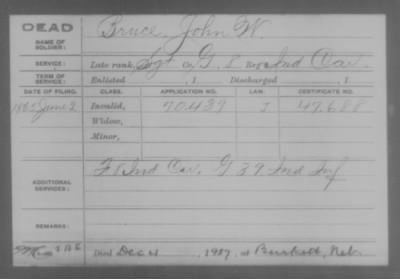 DEAD
NAME OF SOLDIER: Bruce, John W.
SERVICE: Late rank, Sgt Co. G. 8 Reg't Ind Cav.
TERM OF SERVICE: Enlisted , 1 Discharged , 1
DATE OF FILING. CLASS. APPLICATION NO. LAW. CERTIFICATE NO.
June 2 Invalid, 70.439 47.688
Widow,
Minor,
ADDITIONAL SERVICES: F 8 Ind Cav, G 39 Ind Inf
REMARKS:
Died Dec 4 , 1907, at Burkett, Neb.